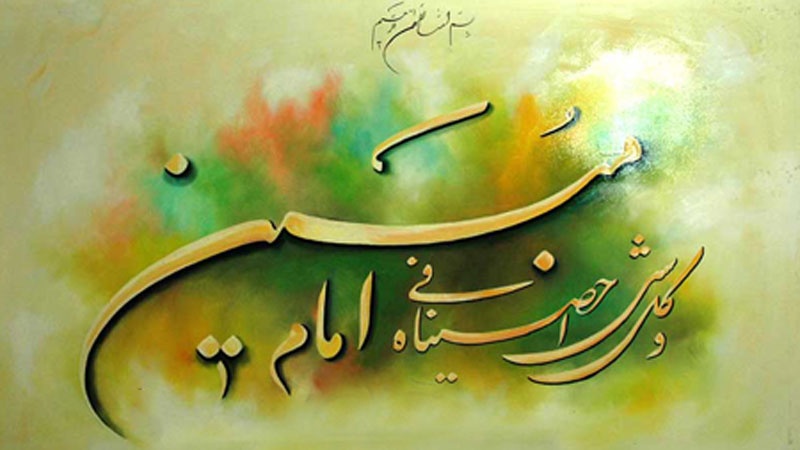 بسم الله الرحمن الرحیم
و کل شئ احصیناه فی امام مبین